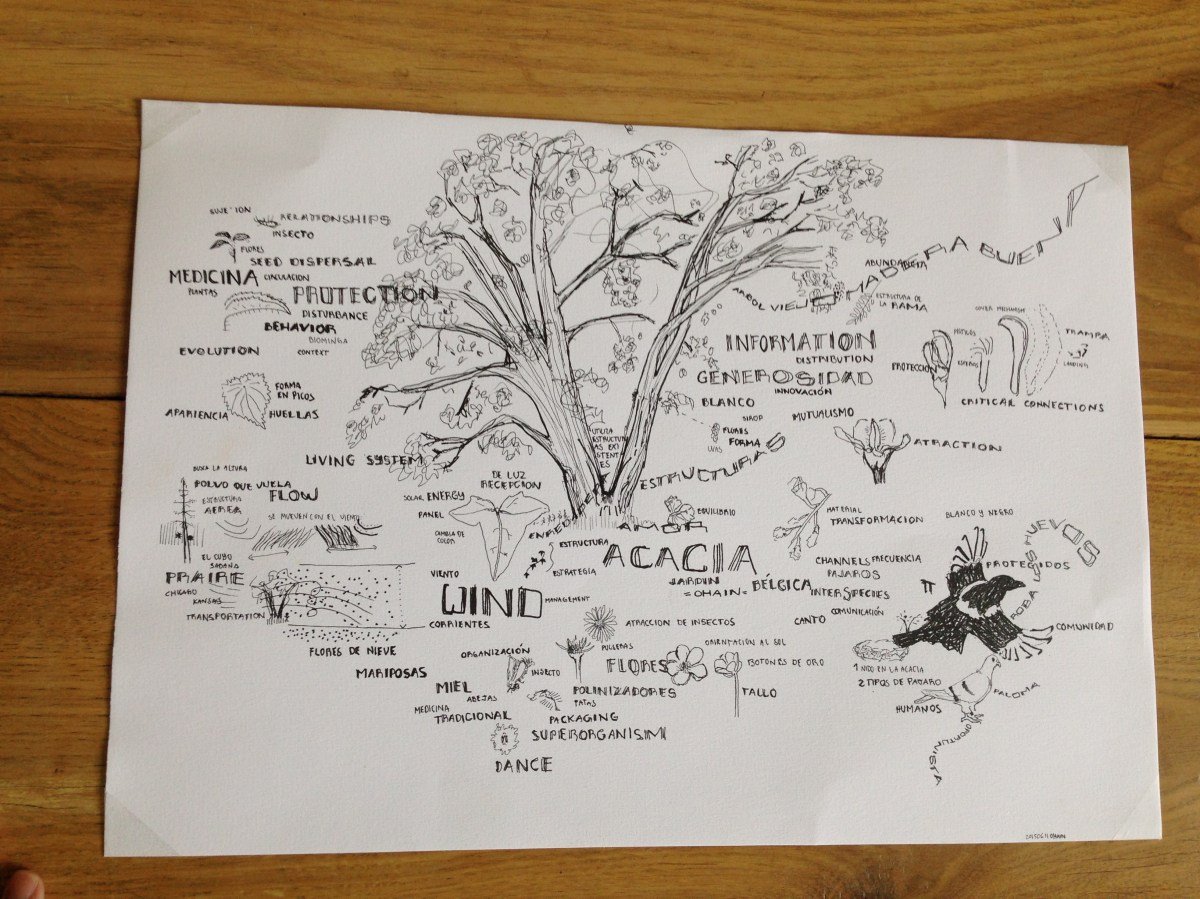 RELATIONSHIPS
INSECTO
FLORES
SEED DISPERSAL
MEDICINA
CIRCULACION
PLANTAS
PROTECTION
DISTURBANCE
BEHAVIOR
BIOMINGA
EVOLUTION
CONTEXT
FORMA
EN PICOS
APARIENCIA
HUELLAS
LIVING SYSTEM
BUSCA LA ALTURA
POLVO QUE VUELA
FLOW
ESTRUCTURA
AEREA
SE MUEVEN CON EL VIENTO
EL CUBO
SABANA
PRAIRE
CHICAGO
KANSAS
TRANSPORTATION
FLORES DE NIEVE
MARIPOSAS
ARBOL VIEJO
MADERA BUENA
ABUNDANCIA
ESTRUCTURA DE
LA RAMA
INFORMATION
DISTRIBUTION
GENEROSIDAD
INNOVACIÓN
BLANCO
SIROP
MUTUALISMO
FLORES
FORMA
UVAS
ESTRUCTURAS
PROTECCION
PISTILOS
TRAMPA
CRITICAL CONNECTIONS
ATRACTION
DE LUZ
RECEPCION
SOLAR ENERGY
PANEL
CAMBIA DE
COLOR
VIENTO
ESTRUCTURA
ESTRATEGIA
AMOR
EQUILIBRIO
ACACIA
JARDIN
=OHAIN=
BÉLGICA
MATERIAL
TRANSFORMACION
CHANNELS FRECUENCIA
PAJAROS
INTERSPECIES
COMUNICACIÓN
CANTO
WIND
MANAGEMENT
CORRIENTES
ATRACCION DE INSECTOS
ORGANIZACIÓN
INSECTO
FLORES
ORIENTACION AL SOL
BOTONES DE ORO
TALLO
MIEL
ABEJAS
MEDICINA
TRADICIONAL
POLINIZADORES
PATAS
PACKAGING
SUPERORGANISM
DANCE
BLANCO Y NEGRO
PROTEGIDOS
ROBA SUS HUEVOS
COMUNIDAD
1 NIDO EN LA ACACIA
2 TIPOS DE PAJARO
HUMANOS
PALOMA
OPORTUNISTA